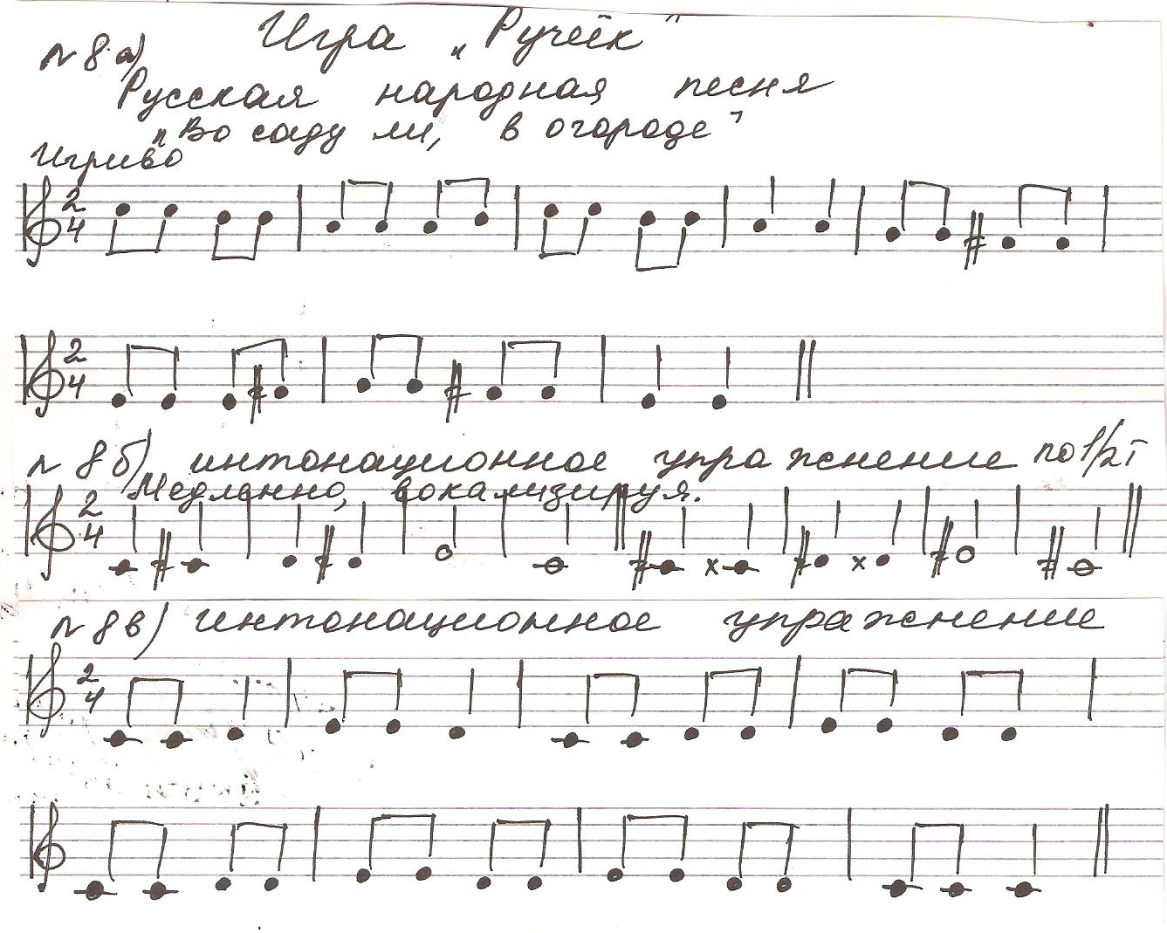 Игра „Ручеёк"
№ 8 а)
Русская народная песня
„Во саду ли, в огороде"
Игриво
2
4
2
4
№ 8 б) интонационное упражнение по 1/2 т
Медленно, вокализируя.
2
4
№ 8 в) интонационное упражнение
2
4